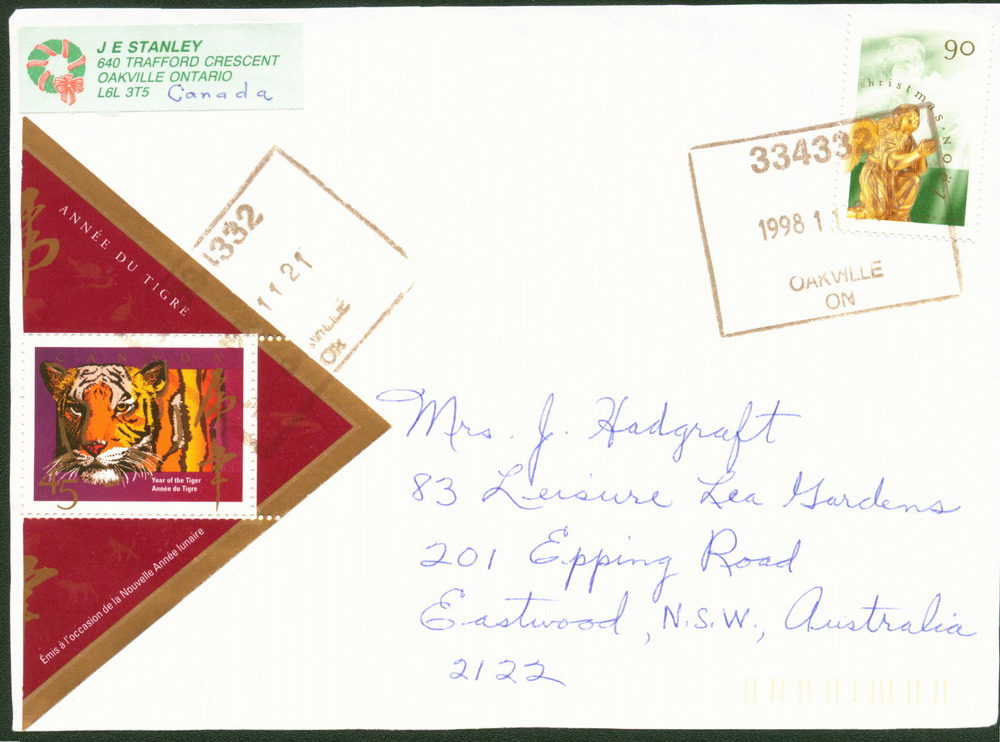 J E STANLEY
640 TRAFFORD CRESCENT
OAKVILLE ONTARIO
L6L 3T5 Canada
90
christmas·NOËL
334332
1998 11
OAKVILLE
ON
ANNÉE DU TIGRE
1332
11 21
VILLE
ON
CANADA
Year of the Tiger
Année du Tigre
45
虎
年
Émis à l'occasion de la Nouvelle Année lunaire
Mrs. J. Hadgraft
83 Leisure Lea Gardens
201 Epping Road
Eastwood, N.S.W., Australia
2122